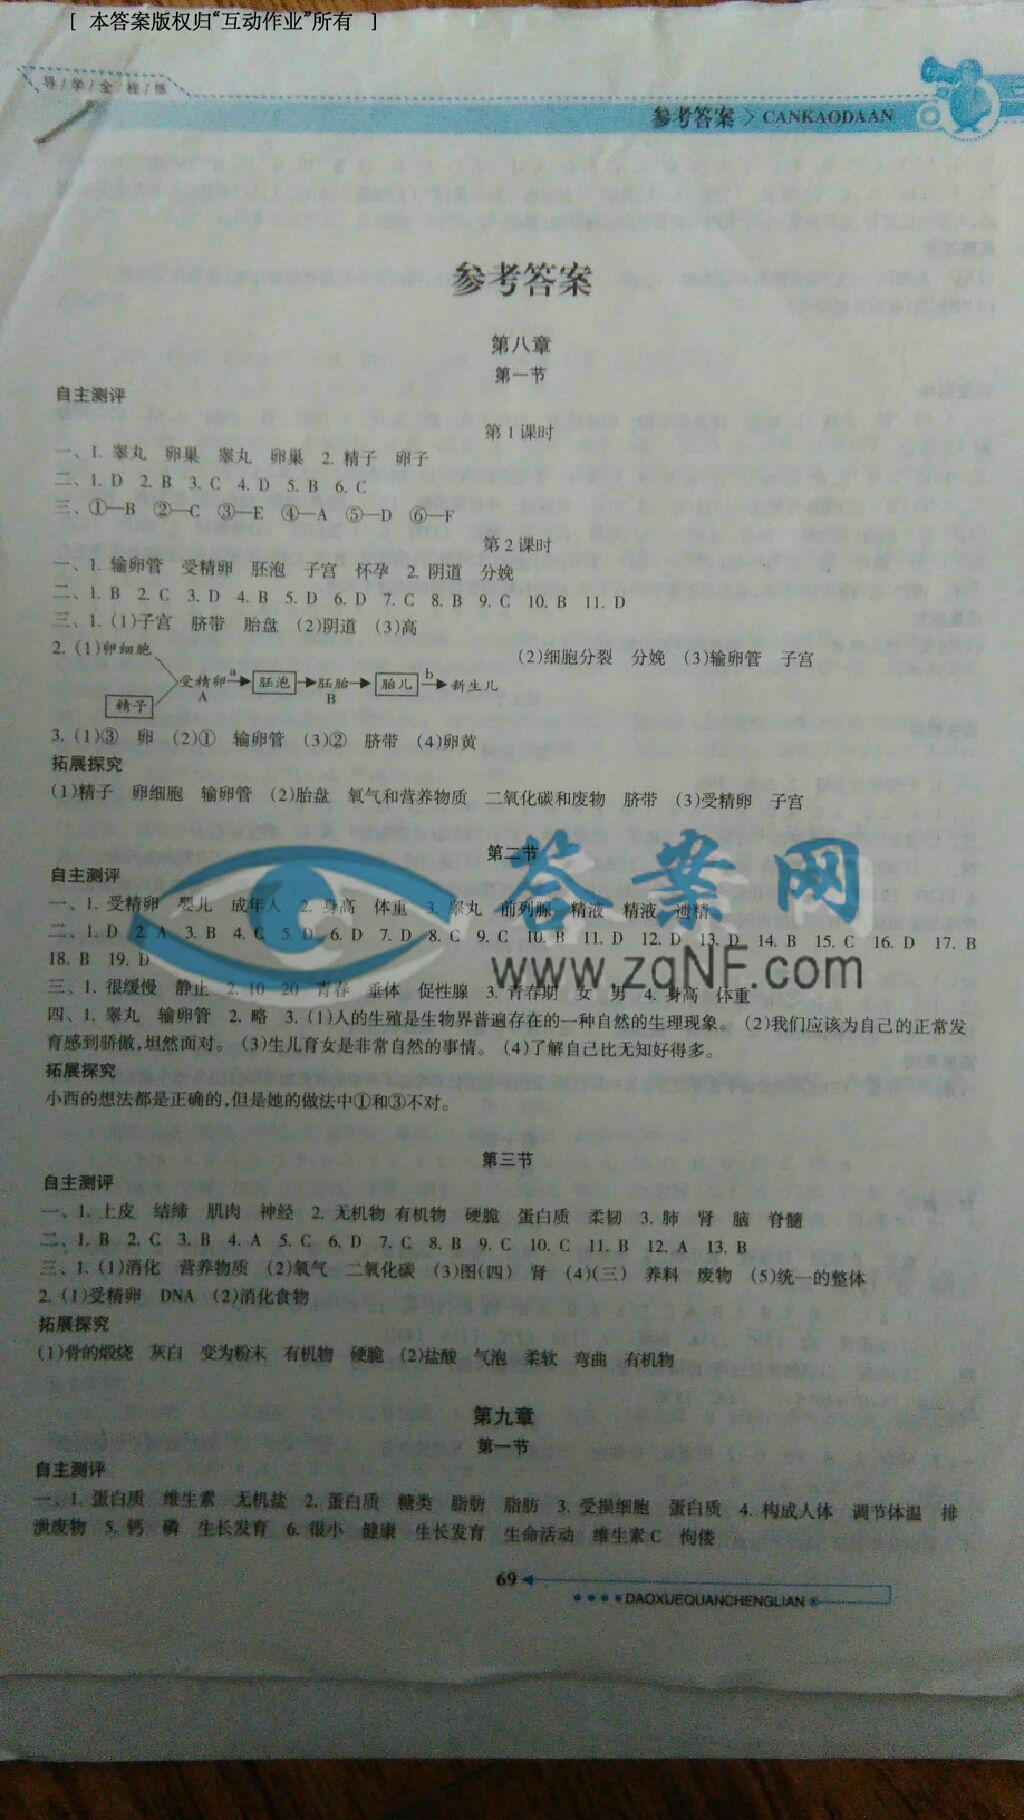 [ 本答案版权归“互动作业”所有 ]
导/学/全/程/练
参考答案 > CANKAODAAN
参考答案
第八章
第一节
自主测评
第1课时
一、1. 睾丸 卵巢 睾丸 卵巢 2. 精子 卵子
二、1. D 2. B 3. C 4. D 5. B 6. C
三、①—B ②—C ③—E ④—A ⑤—D ⑥—F
第2课时
一、1. 输卵管 受精卵 胚泡 子宫 怀孕 2. 阴道 分娩
二、1. B 2. C 3. D 4. B 5. D 6. D 7. C 8. B 9. C 10. B 11. D
三、1. (1)子宫 脐带 胎盘 (2)阴道 (3)高
2. (1)卵细胞
精子
受精卵 a 胚泡 胚胎 胎儿 b 新生儿
A B
(2)细胞分裂 分娩 (3)输卵管 子宫
3. (1)③ 卵 (2)① 输卵管 (3)② 脐带 (4)卵黄
拓展探究
(1)精子 卵细胞 输卵管 (2)胎盘 氧气和营养物质 二氧化碳和废物 脐带 (3)受精卵 子宫
第二节
自主测评
一、1. 受精卵 婴儿 成年人 2. 身高 体重 3. 睾丸 前列腺 精液 精液 遗精
二、1. D 2. A 3. B 4. C 5. D 6. D 7. D 8. C 9. C 10. B 11. D 12. D 13. D 14. B 15. C 16. D 17. B
18. B 19. D
三、1. 很缓慢 静止 2. 10 20 青春 垂体 促性腺 3. 青春期 女 男 4. 身高 体重
四、1. 睾丸 输卵管 2. 略 3. (1)人的生殖是生物界普遍存在的一种自然的生理现象。 (2)我们应该为自己的正常发
育感到骄傲,坦然面对。 (3)生儿育女是非常自然的事情。 (4)了解自己比无知好得多。
拓展探究
小西的想法都是正确的,但是她的做法中①和③不对。
答案网
www.zqNF.com
第三节
自主测评
一、1. 上皮 结缔 肌肉 神经 2. 无机物 有机物 硬脆 蛋白质 柔韧 3. 肺 肾 脑 脊髓
二、1. B 2. C 3. B 4. A 5. C 6. D 7. C 8. B 9. C 10. C 11. B 12. A 13. B
三、1. (1)消化 营养物质 (2)氧气 二氧化碳 (3)图(四) 肾 (4)(三) 养料 废物 (5)统一的整体
2. (1)受精卵 DNA (2)消化食物
拓展探究
(1)骨的煅烧 灰白 变为粉末 有机物 硬脆 (2)盐酸 气泡 柔软 弯曲 有机物
第九章
第一节
自主测评
一、1. 蛋白质 维生素 无机盐 2. 蛋白质 糖类 脂肪 脂肪 3. 受损细胞 蛋白质 4. 构成人体 调节体温 排
泄废物 5. 钙 磷 生长发育 6. 很小 健康 生长发育 生命活动 维生素C 佝偻
69
DAOXUEQUANCHENGLIAN